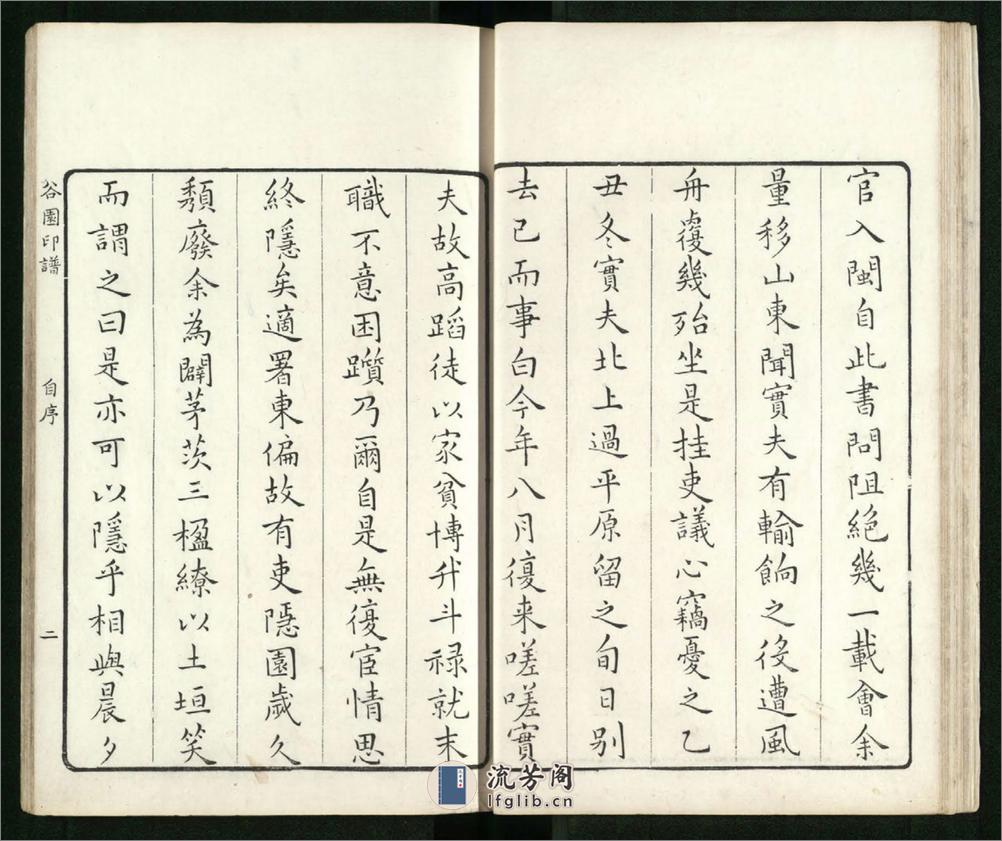 官入閩自此書問阻絕幾一載會余
量移山東聞實夫有輸餉之役遭風
舟覆幾殆坐是挂吏議心竊憂之乙
丑冬實夫北上過平原留之旬日別
去已而事白今年八月復来嗟嗟實
夫故高蹈徒以家貧博升斗禄就末
職不意困躓乃爾自是無復宦情思
終隱矣適署東偏故有吏隱園歲久
頹廢余為闢茅茨三楹繚以土垣笑
而謂之曰是亦可以隱乎相與晨夕
谷園印譜
自序
二
流芳阁
lfglib.cn